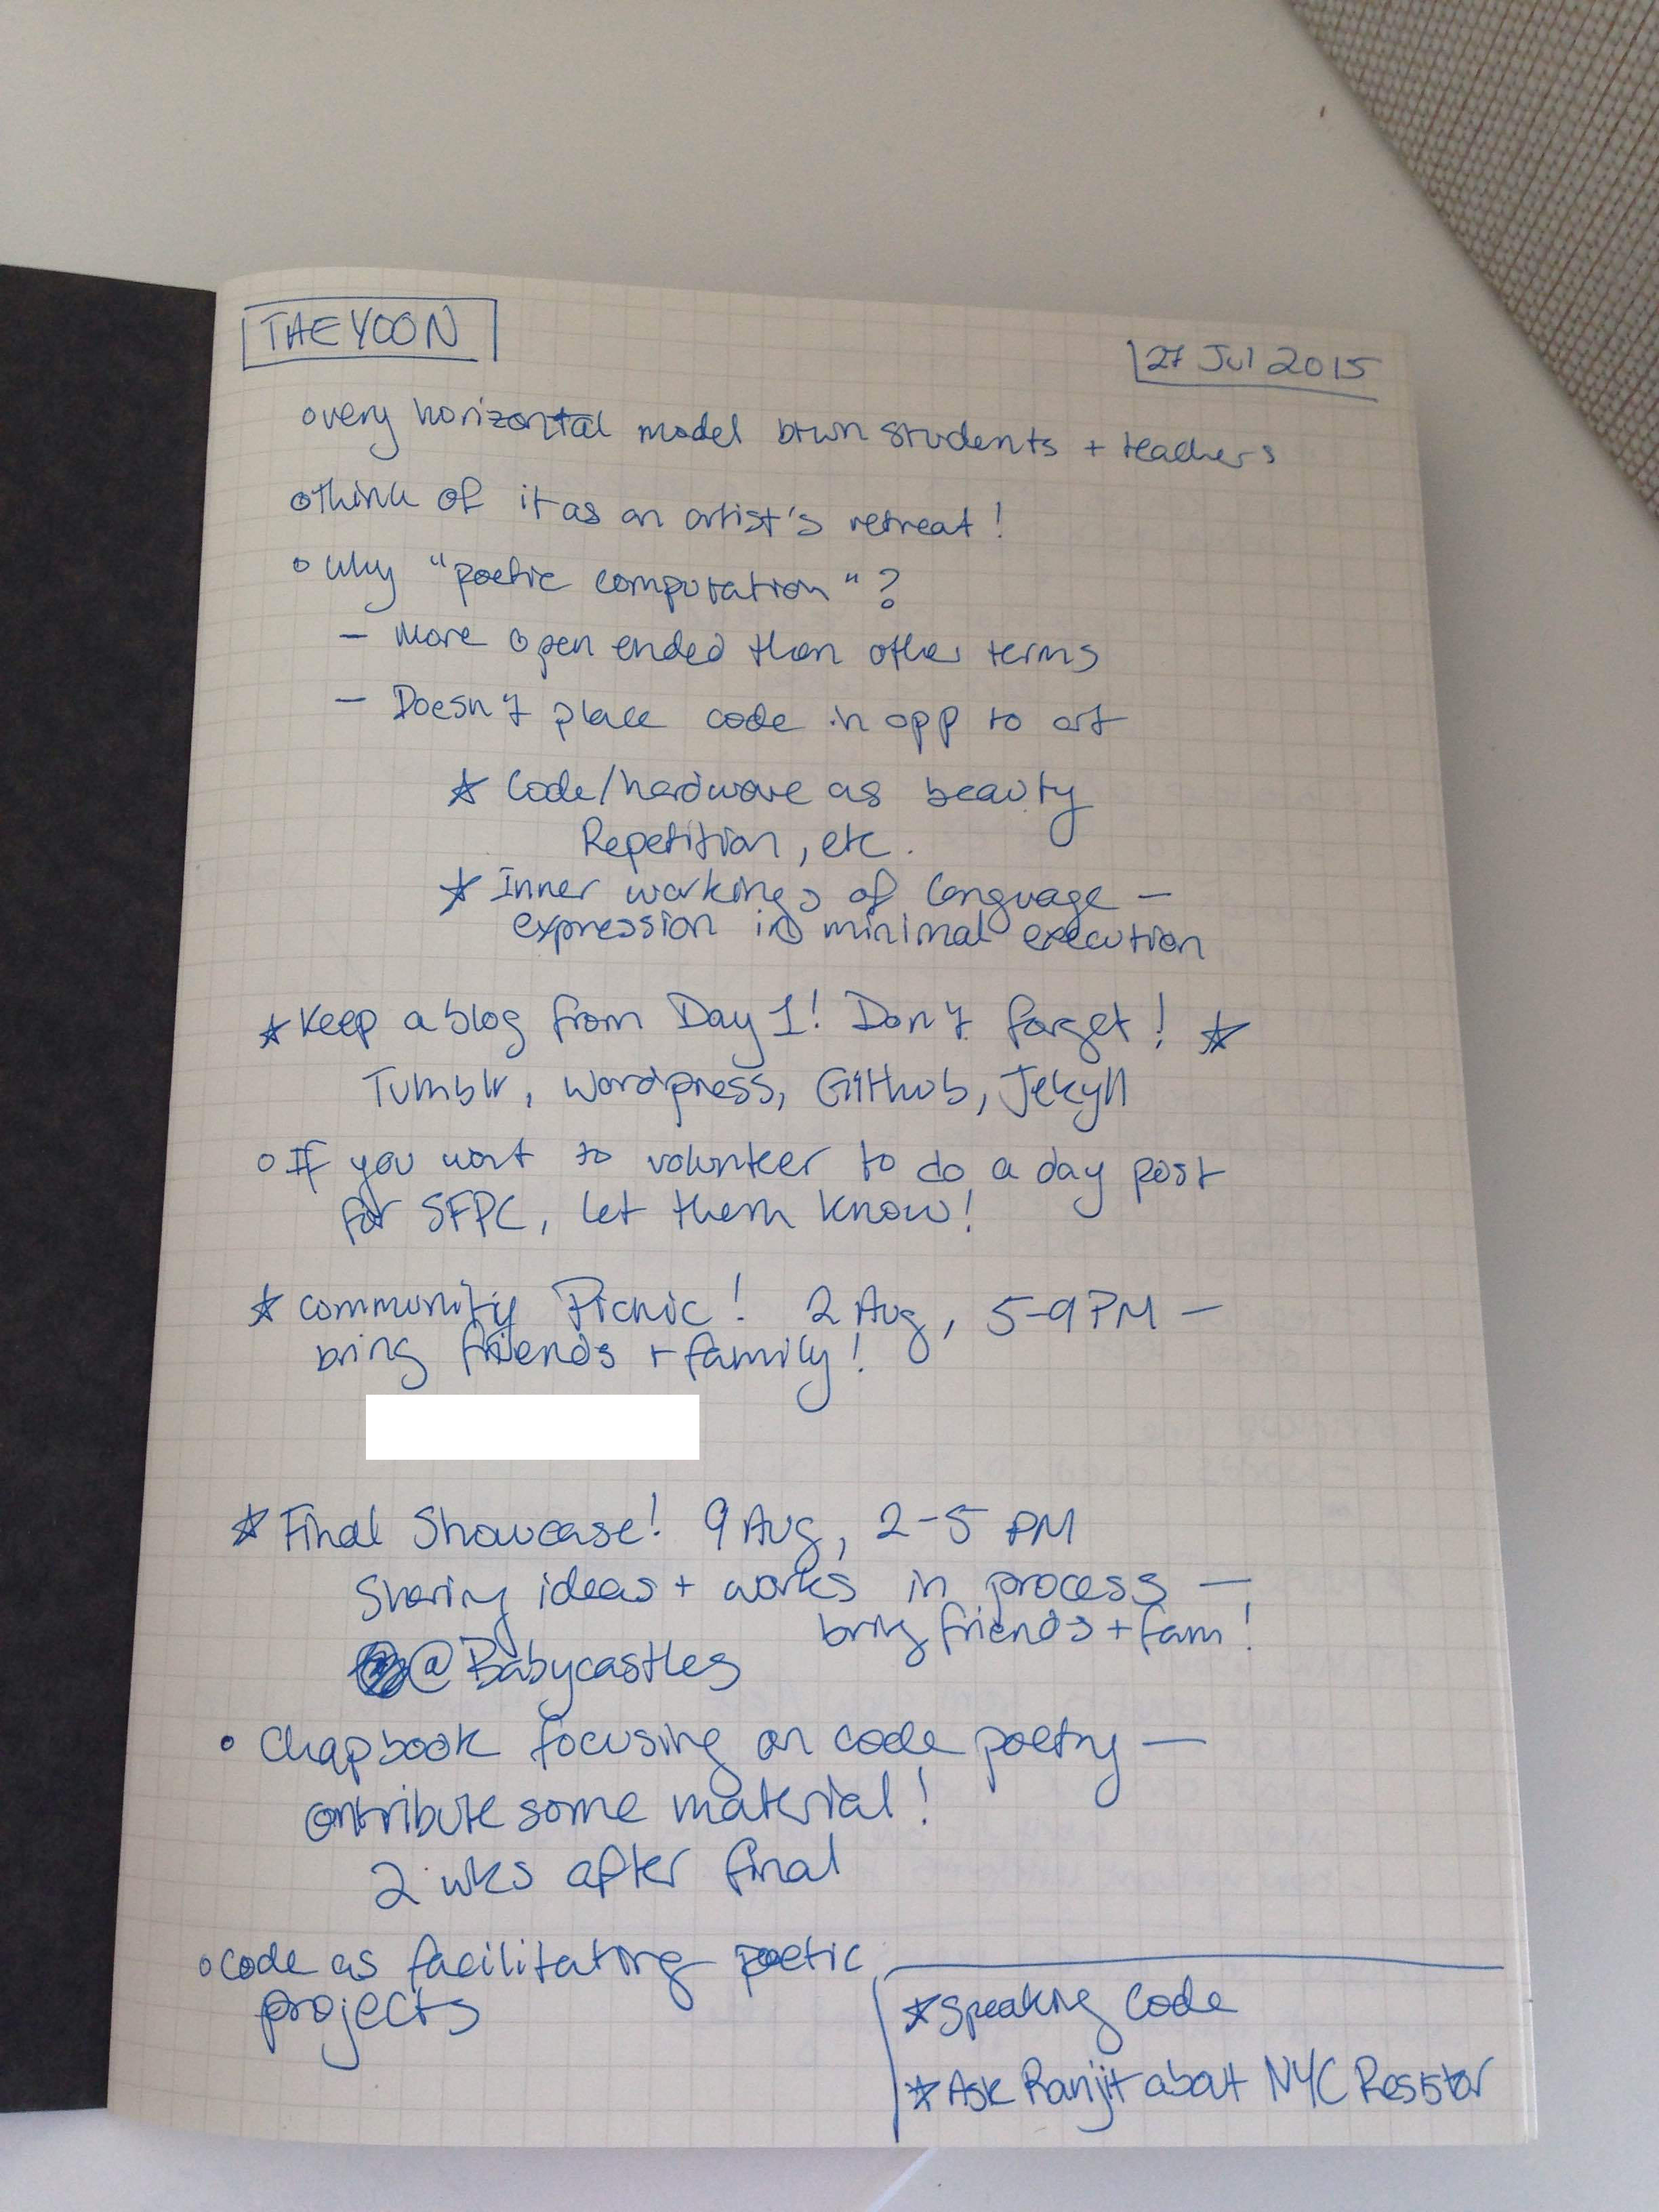 THEYOON
27 Jul 2015
very horizontal model btwn students + teachers
think of it as an artist's retreat!
Why "poetic computation"?
- More open ended than other terms
- Doesn't place code in opp to art
★ Code/hardware as beauty
Repetition, etc.
★ Inner workings of language —
expression in minimal execution
★ Keep a blog from Day 1! Don't forget! ★
Tumblr, Wordpress, GitHub, Jekyll
If you want to volunteer to do a day post
for SFPC, let them know!
★ Community Picnic! 2 Aug, 5-9 PM —
bring friends + family!
★ Final Showcase! 9 Aug, 2-5 PM
Sharing ideas + works in process —
bring friends + fam!
@Babycastles
• Chapbook focusing on code poetry —
contribute some material!
2 wks after final
code as facilitating poetic
projects
★ Speaking Code
★ Ask Ranjit about NYC Resistor